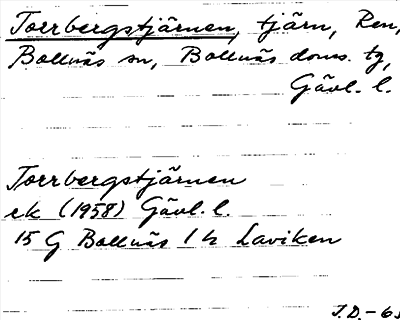 Torrbergstjärnen, tjärn, Ren,
Bollnäs sn, Bollnäs doms. tg,
Gävl. l.
Torrbergstjärnen
ek (1958) Gävl. l.
15 G Bollnäs 1 h Laviken
J.D. -